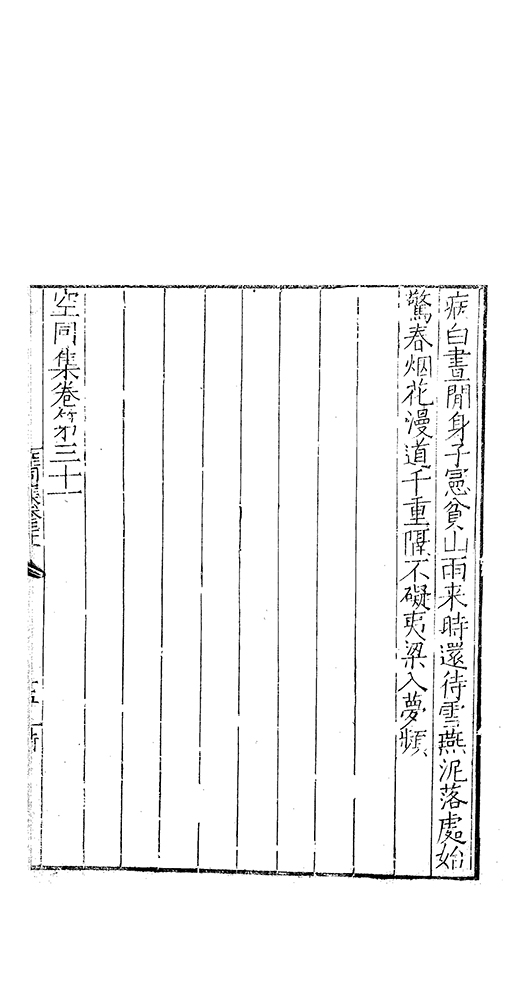 病白晝閒身子憲貧山雨来時還待雪燕泥落處始
驚春烟花漫道千重隔不礙夷梁入夢頻
空同集卷第三十一